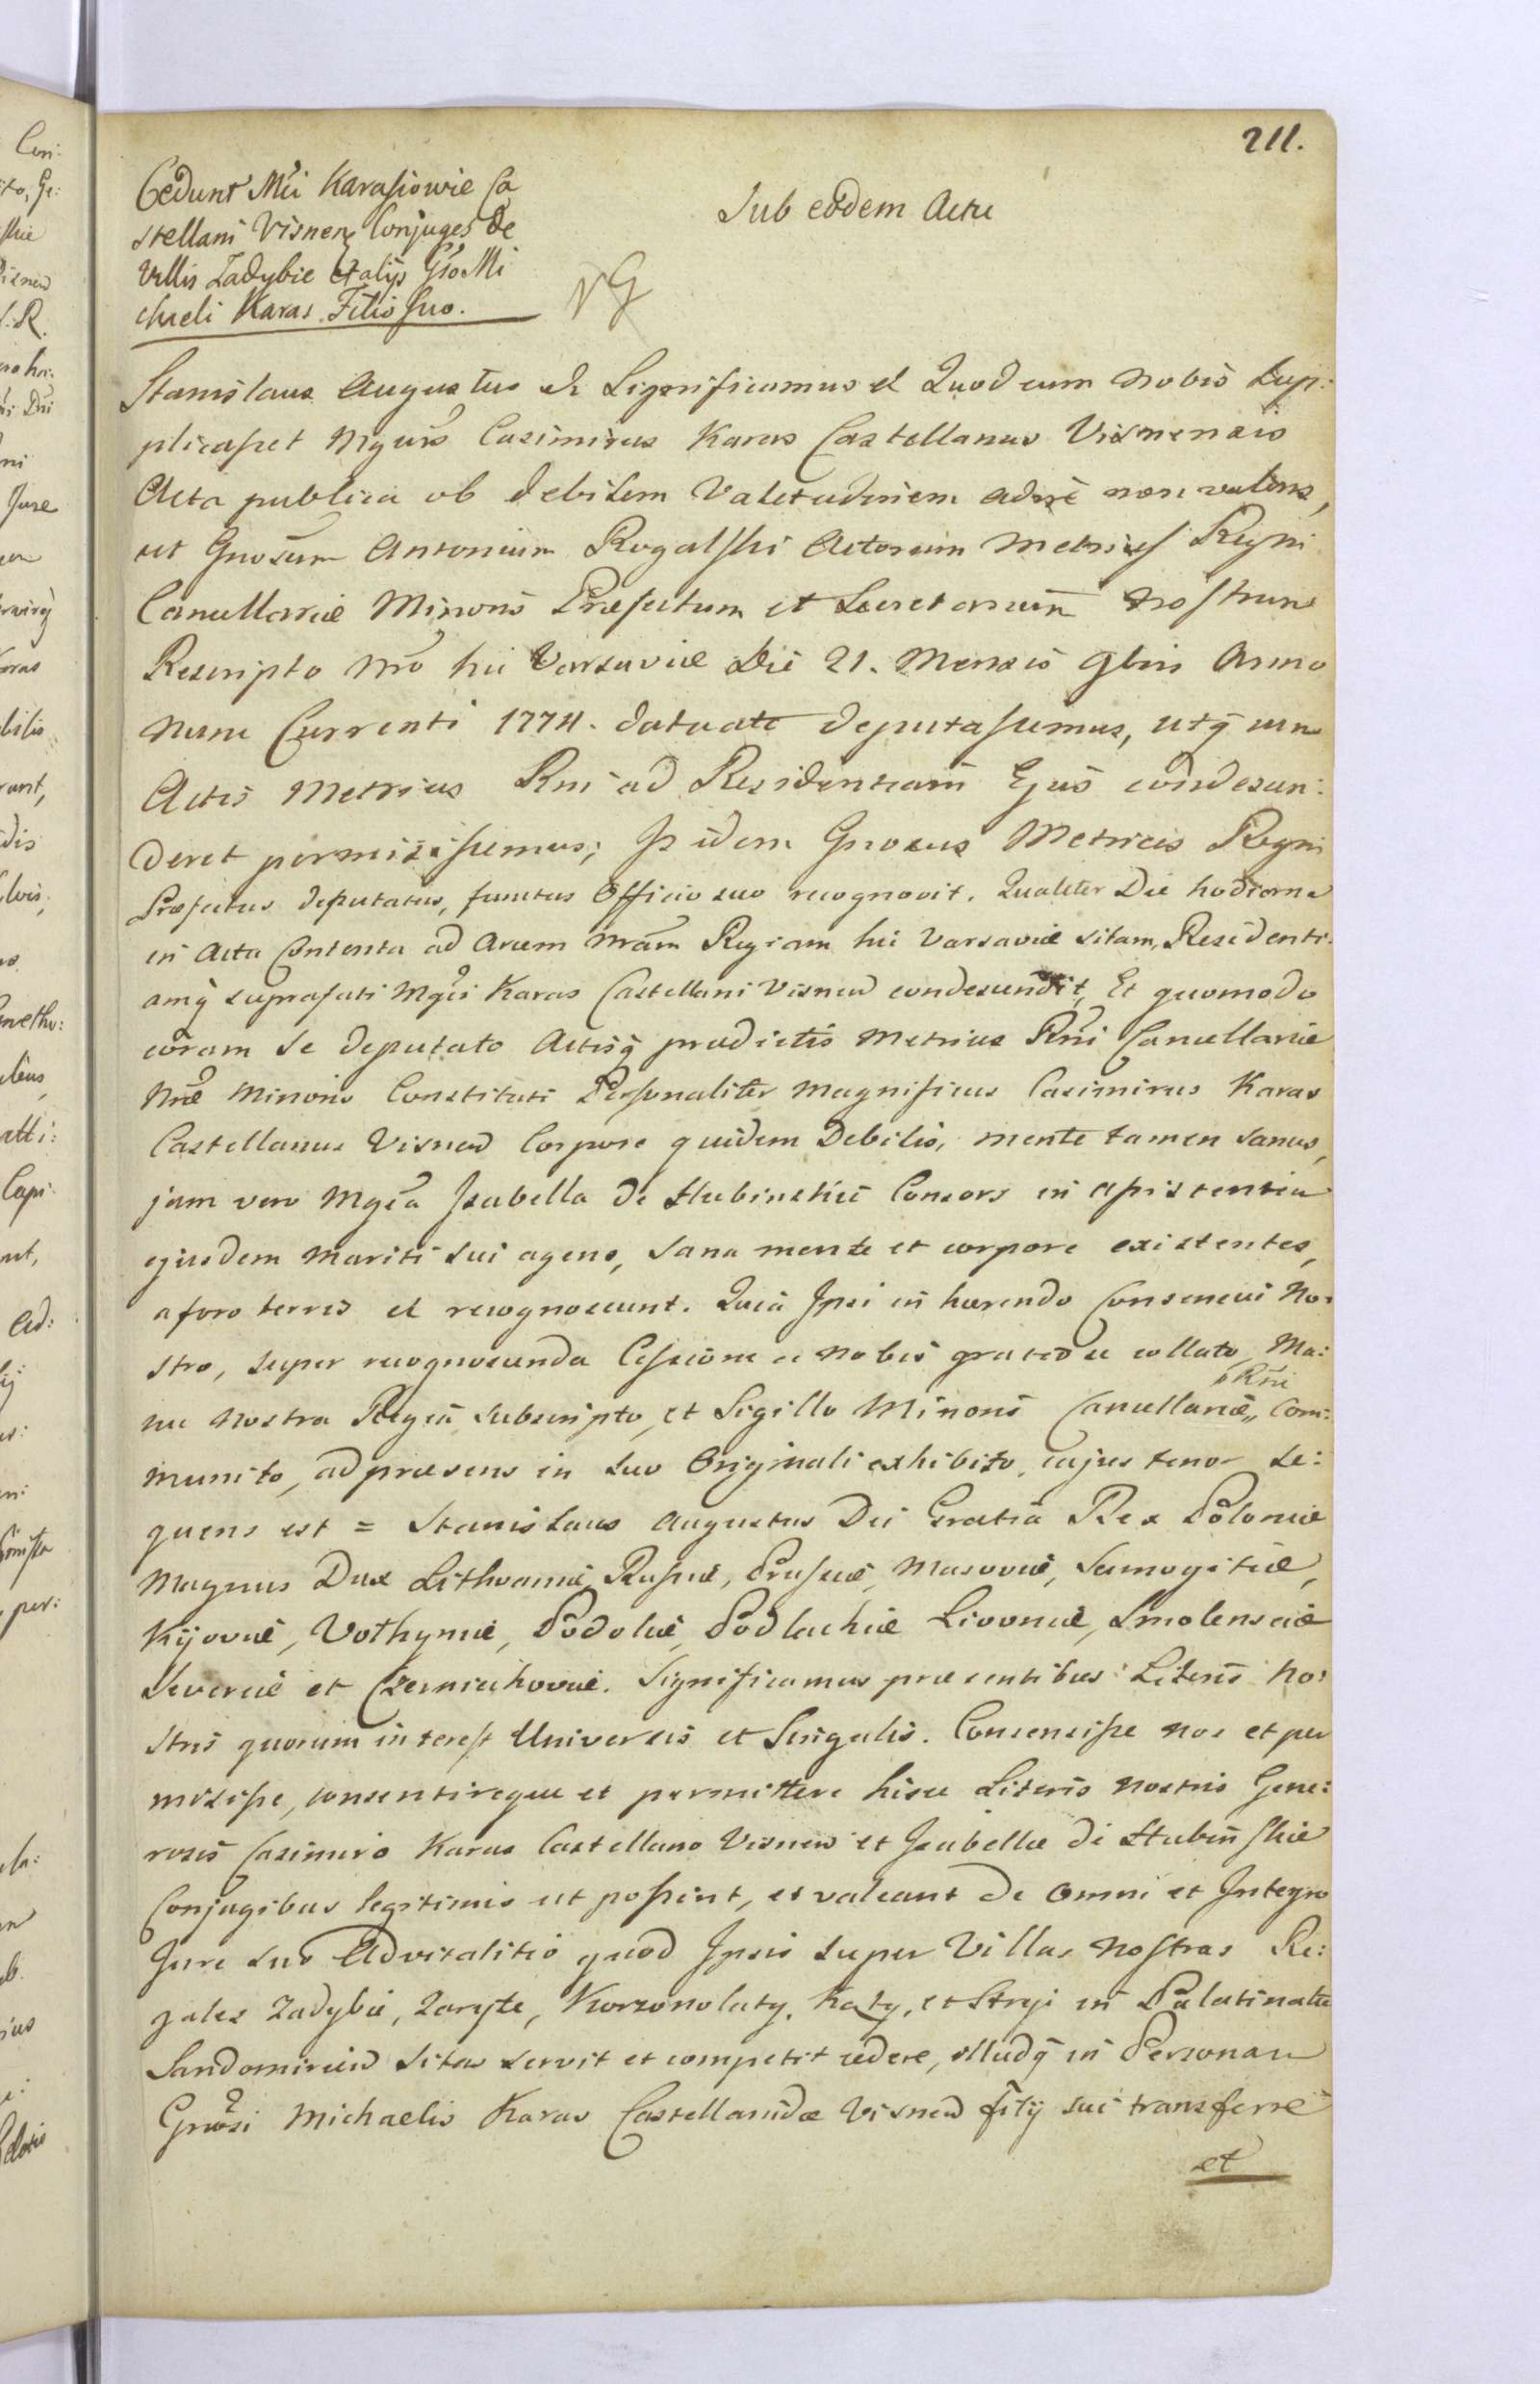 211.
Cedunt Mci Karasiowie Ca
stellani Visnen Conjuges de
Villis Zadybie et alijs Gso Mi
chaeli Karas Filio suo.
Sub eodem Actu
Stanislaus Augustus &c Significamus &c Quod cum Nobis Sup:
plicasset Mgcus Casimirus Karas Castellanus Visnensis
Acta publica ob debilem Valetudinem adire non valens,
ut Gnosum Antonium Rogalski Actorum Metrices Regni
Cancellariæ Minoris Præfectum et Secretarium Nostrum
Rescripto Nro hic Varsaviæ Die 21. Mensis 9bris Anno
nunc Currenti 1774. datoate deputassemus, utq cum
Actis Metrices Rni ad Residentiam Ejus condescen:
deret permisissemus; Is idem Gnosus Metrices Regni
Præfectus deputatus, functus Officio suo recognovit. Qualiter Die hodierna
in Acta Contenta ad Arcem Nram Regiam hic Varsaviæ sitam, Residenti
amq suprafati Mgci Karas Castellani Visnen condescendit, Et quomodo
coram se deputato Actisq prædictis Metrices Rni Cancellariæ
Nræ Minoris Constituti Personaliter Magnificus Casimirus Karas
Castellanus Visnen Corpore quidem Debilis, mente tamen sanus,
jam vero Mgca Isabella de Hubinskie Consors in assistentia
ejusdem Mariti sui agens, sana mente et corpore existentes,
a foro terris &c recognoscunt. Quia Ipsi in hærendo Consensui No:
stro, super recognoscenda Cessione a nobis gratiose collato, Ma:
nu Nostra Regia subscripto, et Sigillo Minoris Cancellariæ Rni Com:
munito, ad præsens in suo Originali exhibito, cujus tenor se:
quens est = Stanislaus Augustus Dei Gratia Rex Poloniæ
Magnus Dux Lithvaniæ, Russiæ, Prussiæ, Masoviæ, Samogitiæ,
Kijoviæ, Volhyniæ, Podoliæ, Podlachiæ Livoniæ, Smolensciæ
Severiæ et Czerniechoviæ. Significamus præsentibus Literis No:
stris quorum interest Universis et Singulis. Consensisse nos et per
misisse, consentireque et permittere hisce Literis Nostris Gene:
rosis Casimiro Karas Castellano Visnen et Isabellæ de Hubinskie
Conjugibus legitimis ut possint, et valeant de omni et Integro
Jure suo Advitalitio quod Ipsis super Villas Nostras Re:
gales Zadybie, Zaryte, Korzonolaty, Kąty, et Stryi in Palatinatu
Sandomirien sitas servit et competit cedere, illudq in Personam
Gnosi Michaelis Karas Castellanidæ Visnen filij sui transferre
et